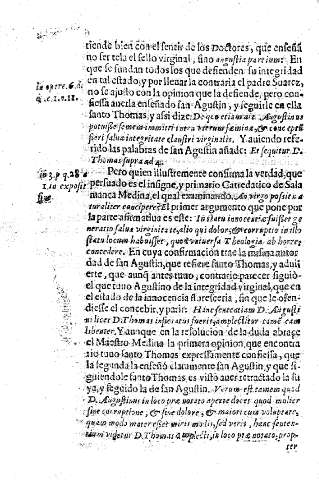 tiende bien con el sentir de los Doctores, que enseñã
no ser tela el sello virginal, sino angustia partium. En
que se fundan todos los que defienden su integridad
en tal estado, y por llevar la contraria el padre Suarez,
no se ajustò con la opinion que la defiende, pero con-
fiessa averla enseñado san Agustin, y seguirle en ella
santo Thomas, y assi dize: Augustinus
potuisse semen immitti intra uterum fœminæ, & eme
salva integritate claustri virginalis. Y auiendo refe-
rido las palabras de san Agustin añade: Et sequitur D.
Thomas supra ad 4.
Pero quien illustremente confirma la verdad, que
persuado es el insigne, y primario Catredatico de Sala
manca Medina, el qual examinando, An
concipere? El primer argumento que pone por
la parte afirmativa es este: In statu innocentiæ fuisset ge-
neratio salva virginitate, alio qui dolor, & corruptio in illo
statu locum habuisset, quod universa Theologia ab horret
concedere. En cuya confirmaciõ trae la misma autori
dad de san Agustin, que refiere santo Thomas, y advi
erte, que aunq antes tuuo, contrario parecer siguiò
el que tuuo Agustino de la integridad virginal, que en
el estado de la inocencia floresceria, sin que le ofen-
diesse el concebir, y parir: Hanc sententiam D. Augusti
ni licet D. Thomas inficiatus fuerit, amplectitur tamē eam
libenter. Y aunque en la resolucion de la duda abraça
el Maestro Medina la primera opinion, que encontra
rio tuuo santo Thomas expressamente confiessa, que
la segunda la enseñò claramente san Agustin, y que si-
guiendole santo Thomas, es visto aver retractado la su
ya, y seguido la de san Agustin. Verum est tamen quod
D. Augustinus in loco præ notato aperte docet quod mulier
sine corruptione, & sine dolore, & maiori cum voluptate,
quam modo mater esset viro mulier, sed veris, hanc senten-
tiam videtur D. Thomas amplecti, in loco præ notato, prop-
ter
In opere. 6. d.
q. 2. n. 11.
in 3. p. q. 28. a
1. in exposit